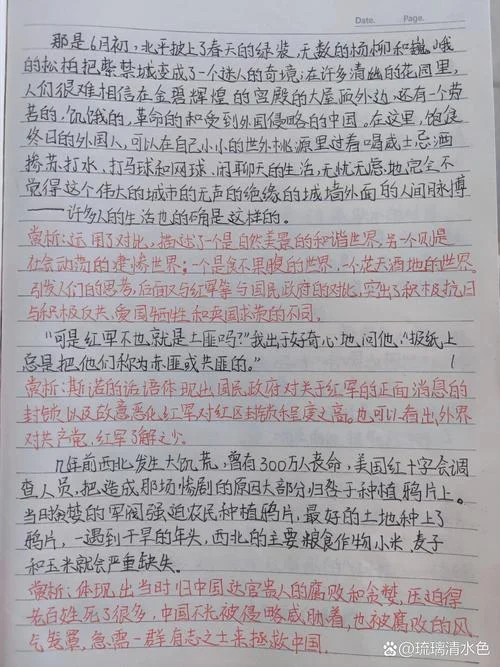 Date.    Page.
那是6月初，北平披上了春天的绿装，无数的杨柳和巍峨
的松柏把紫禁城变成了一个迷人的奇境；在许多清幽的花园里，
人们很难相信在金碧辉煌的宫殿的大屋顶外边，还有一个劳
苦的、饥饿的、革命的和受到外国侵略的中国。在这里，饱食
终日的外国人，可以在自己小小的世外桃源里过着喝威士忌酒
掺苏打水、打马球和网球、闲聊天的生活，无忧无虑地完全不
觉得这个伟大的城市的无声的绝缘的城墙外面的人间脉搏
——许多人的生活也的确是这样的。
赏析：运用了对比，描述了一个是自然美景的和谐世界，另一个则是
社会动荡的悲惨世界；一个是食不果腹的世界，一个花天酒地的世界。
引发人们的思考，后面又与红军等与国民政府的对比，突出了积极抗日
与积极反共，爱国牺牲和卖国求荣的不同。
“可是红军不也就是土匪吗？”我出于好奇心地问他，“报纸上
总是把他们称为赤匪或共匪的。”
赏析：斯诺的话语体现出国民政府对关于红军的正面消息的
封锁以及故意恶化红军对红区封锁程度之高。也可以看出，外界
对共产党，红军了解之少。
几年前西北发生大饥荒，曾有300万人丧命，美国红十字会调
查人员，把造成那场惨剧的原因大部分归咎于种植鸦片上。
当时贪婪的军阀强迫农民种植鸦片，最好的土地种上了
鸦片，一遇到干旱的年头，西北的主要粮食作物小米、麦子
和玉米就会严重缺失。
赏析：体现出当时旧中国达官贵人的腐败和贪婪，压迫得
老百姓死了很多，中国不光被侵略威胁着，也被腐败的风
气笼罩，急需一群有志之士来拯救中国。
@琉璃清水色